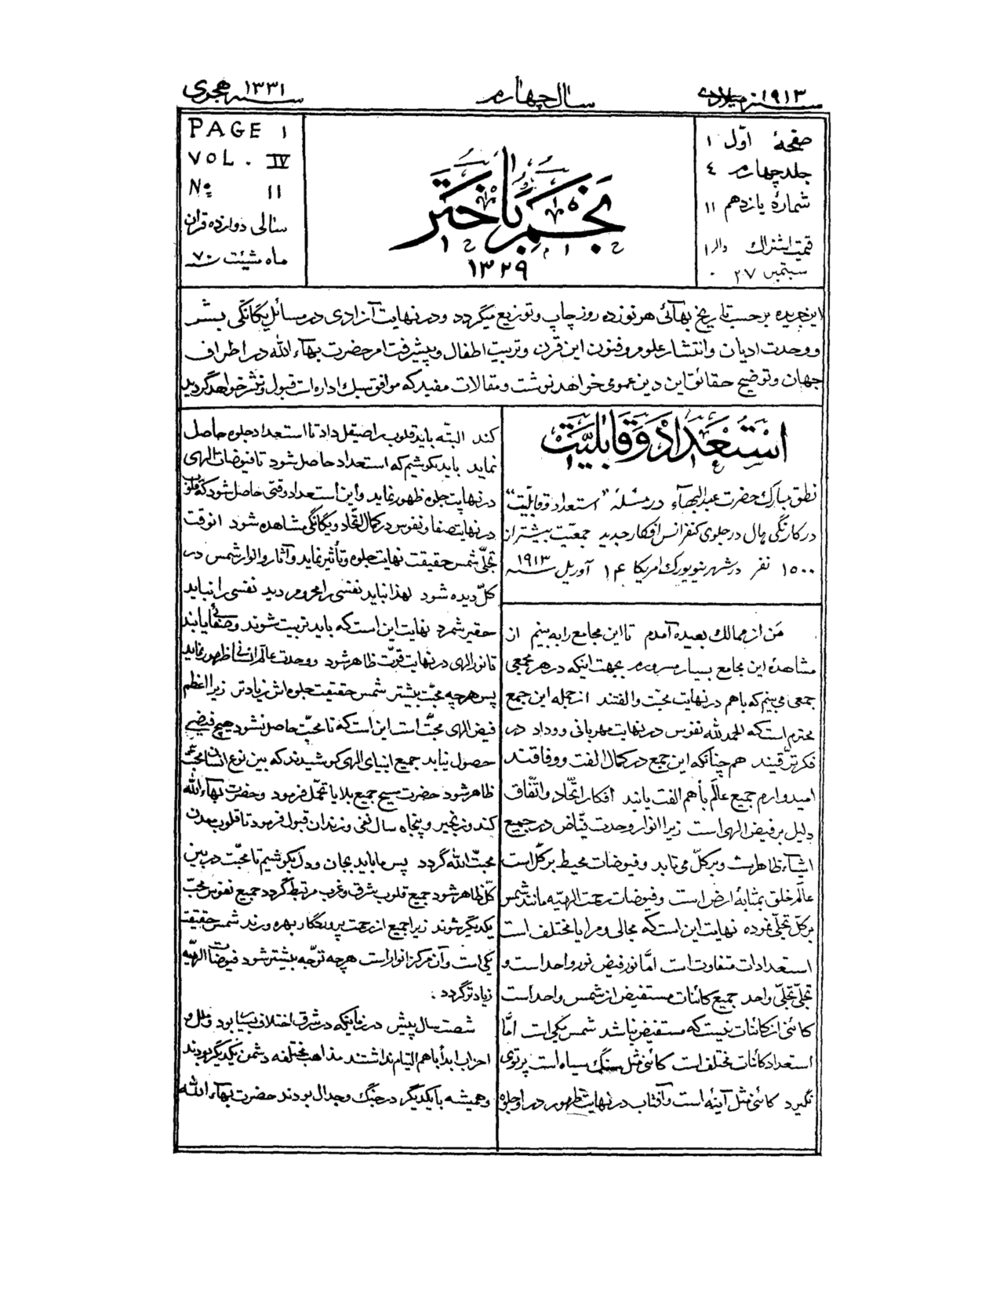 سنه ۱۹۱۳ میلادی
سال چهارم
سنه ۱۳۳۱ هجری
صفحهٔ اوّل ۱
جلد چهارم ۴
شمارهٔ یازدهم ۱۱
قیمت اشتراک ۱ دالر
سپتمبر ۲۷
نجم باختر
۱۳۲۹
PAGE 1
VOL. IV
No 11
سالی دوازده قران
ماه مشیّت ۷۰
این جریده برحسب تاریخ بهائی هر نوزده روز چاپ و توزیع میگردد و در نهایت آزادی در مسائل یگانگی بشر
و وحدت ادیان و انتشار علوم و فنون این قرن و تربیت اطفال و پیشرفت امر حضرت بهاء الله در اطراف
جهان و توضیح حقائق این دین عمومی خواهد نوشت و مقالات مفیده که موافق سبک اداره است قبول و نشر خواهد گردید
استعداد و قابلیّت
نطق مبارک حضرت عبدالبهآء در مسئلهٔ "استعداد و قابلیّت"
در کارنگی هال در جلوی کنفرانس افکار جدید جمعیّت بیشتر از
۱۵۰۰ نفر در شهر نیویورک امریکا ۱۴ آوریل سنه ۱۹۱۳
من از ممالک بعیده آمدم تا این مجامع را به بینم از
مشاهدهٔ این مجامع بسیار مسرورم بجهت اینکه در هر مجمعی
جمعی می بینم که با هم در نهایت محبّت و الفتند از جمله این جمع
محترم است که الحمد لله نفوس در نهایت مهربانی و وداد در
فکر ترقّیند هم چنانکه این جمع در کمال الفت و وفاقند
امیدوارم جمیع عالم با هم الفت یابند افکار اتّحاد و اتّفاق
دلیل بر فیض الهی است زیرا انوار وحدت فیّاض در جمیع
اشیآء ظاهر است و بر کلّ می تابد و فیوضات محیط بر کلّ است
عالم خلق بمثابهٔ ارض است و فیوضات رحمت الهیّه مانند شمس
بر کلّ تجلّی نموده نهایت این است که مجالی و مرایا مختلف است
استعدادات متفاوت است امّا نور فیض نور واحد است و
تجلّی تجلّی واحد جمیع کائنات مستفیض از شمس واحد است
کائنی از کائنات نیست که مستفیض نباشد شمس یکی است امّا
استعداد کائنات مختلف است کائنی مثل سنگ سیاه است پرتوی
نگیرد کائنی مثل آینه است و آفتاب در نهایت ظهور در او جلوه
کند البتّه باید قلوب را صیقل داد تا استعداد جلوه حاصل
نماید باید بکوشیم که استعداد حاصل شود تا فیوضات الهی
در نهایت جلوه ظهور نماید و این استعداد وقتی حاصل شود که قلوب
در نهایت صفا و نفوس در کمال اتّحاد و یگانگی مشاهده شود انوقت
تجلّی شمس حقیقت نهایت جلوه و تأثیر نماید و آثار و انوار شمس در
کلّ دیده شود لهذا نباید نفسی را محروم دید نفسی را نباید
حقیر شمرد نهایت این است که باید تربیت شوند و صفائی یابند
تا نور الهی در نهایت قوّت ظاهر شود و وحدت عالم انسانی ظهور نماید
پس هر چه محبّت بیشتر شمس حقیقت جلوه اش زیادتر زیرا اعظم
فیض الهی محبّت است این است که تا محبّت حاصل نشود هیچ فیضی
حصول نیابد جمیع انبیای الهی کوشیدند که بین نوع انسان محبّت
ظاهر شود حضرت مسیح جمیع بلایا تحمّل فرمود و حضرت بهآءالله
کند و زنجیر و پنجاه سال نفی و زندان قبول فرمود تا قلوب معدن
محبّت الله گردد پس ما باید بجان و دل بکوشیم تا محبّت در بین
کلّ ظاهر شود جمیع قلوب شرق و غرب مرتبط گردد جمیع نفوس محبّ
یکدیگر شوند زیرا جمیع از رحمت پروردگار بهره ورند شمس حقیقت
یکی است و آن مرکز انوار است هر چه توجّه بیشتر شود فیوضات الهیّه
زیادتر گردد .
شصت سال پیش در زمانیکه در شرق اختلاف بسیار بود و ملل و
احزاب ابداً با هم التیام نداشتند مذاهب مختلفه دشمن یکدیگر بودند
و همیشه با یکدیگر در جنگ و جدال بودند حضرت بهآءالله